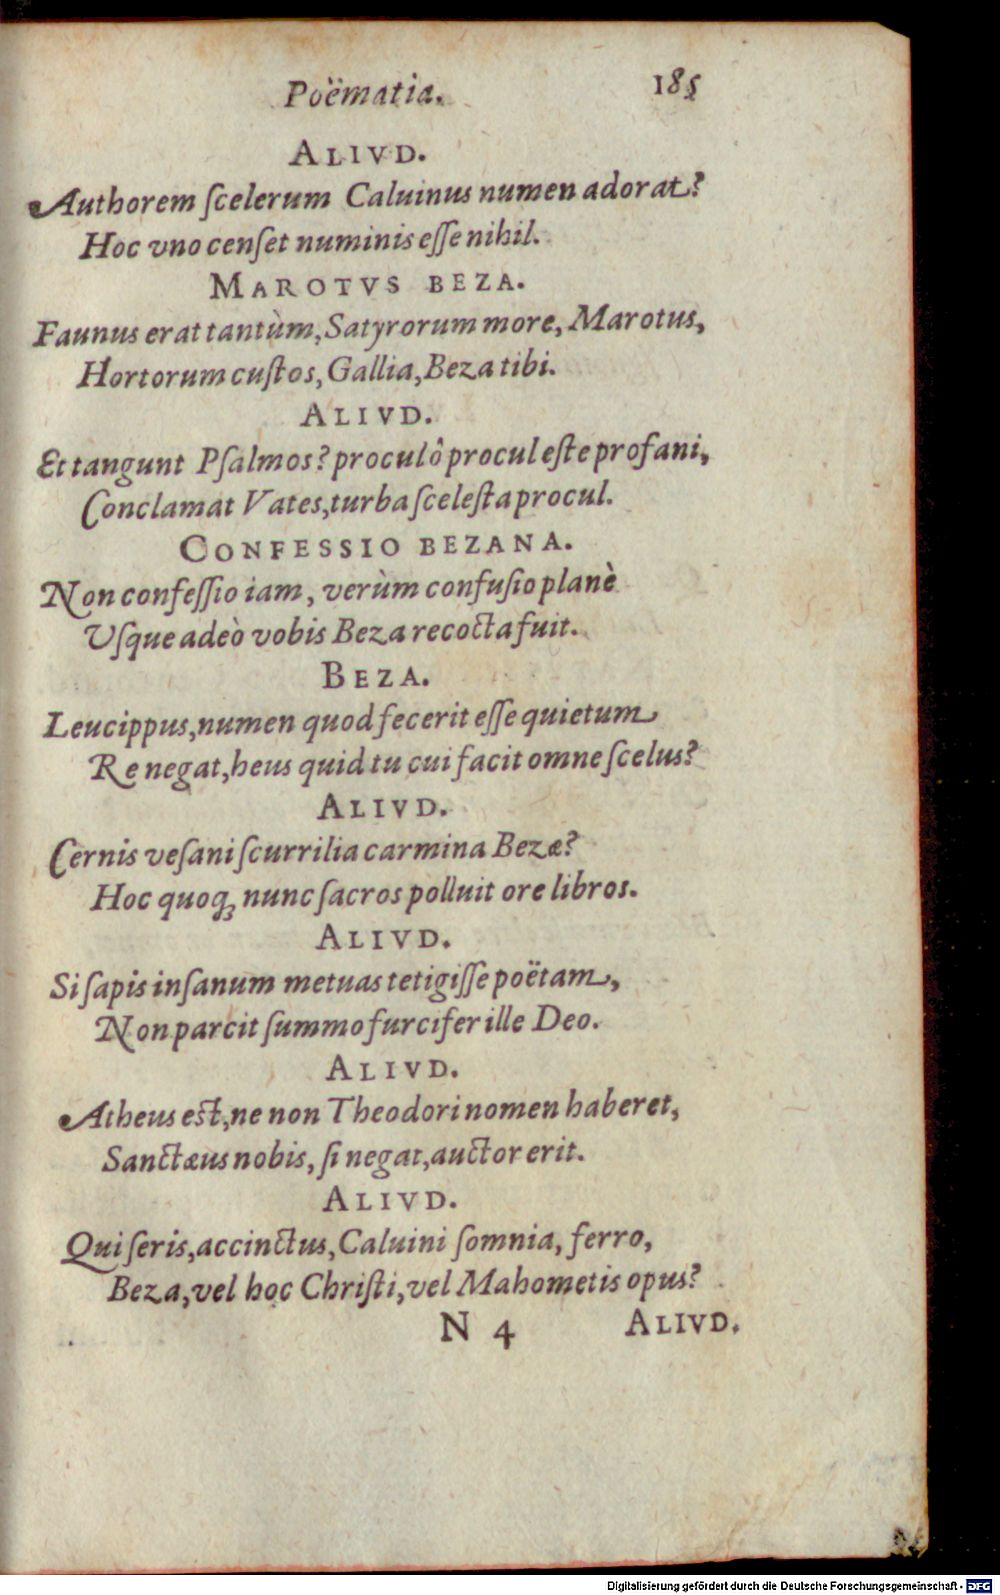 Poëmatia. 185
ALIVD.
Authorem ſcelerum Caluinus numen adorat?
Hoc vno cenſet numinis eſſe nihil.
MAROTVS BEZA.
Faunus erat tantùm, Satyrorum more, Marotus,
Hortorum cuſtos, Gallia, Beza tibi.
ALIVD.
Et tangunt Pſalmos? procul ô procul eſte profani,
Conclamat Vates, turba ſceleſta procul.
CONFESSIO BEZANA.
Non confeſſio iam, verùm confuſio planè
Uſque adeò vobis Beza recocta fuit.
BEZA.
Leucippus, numen quod fecerit eſſe quietum
Re negat, heus quid tu cui facit omne ſcelus?
ALIVD.
Cernis veſani ſcurrilia carmina Bezæ?
Hoc quoq; nunc ſacros polluit ore libros.
ALIVD.
Si ſapis inſanum metuas tetigiſſe poëtam,
Non parcit ſummo furcifer ille Deo.
ALIVD.
Atheus eſt, ne non Theodori nomen haberet,
Sanctæus nobis, ſi negat, auctor erit.
ALIVD.
Qui ſeris, accinctus, Caluini ſomnia, ferro,
Beza, vel hoc Chriſti, vel Mahometis opus?
N 4 ALIVD.
Digitalisierung gefördert durch die Deutsche Forschungsgemeinschaft - DFG